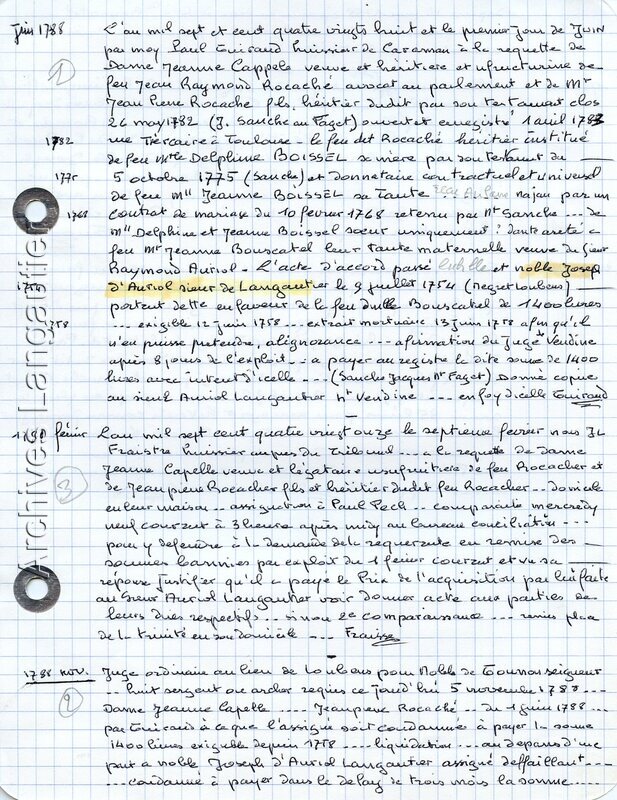 Juin 1788
L'an mil sept et cent quatre vingts huit et le premier jour de JUIN
par moy Paul Guiraud huissier de Caraman à la requette de
Dame Jeanne Cappele veuve et héritiere et usufructuire de
1
feu Jean Raymond Rocaché avocat au parlement et de Mr
Jean Pierre Rocache fils, héritier dudit par son testament clos
26 may 1782 (J. Sanche au Faget) ouvert et enregisté 1 avril 1783
1782
rue Tiercaire à Toulouse - le feu dit Rocaché héritier institué
de feu Mlle Delphine BOISSEL derniere par son testament du
1775
5 octobre 1775 (Sanche) et donnataire contractuel et universel
de feu Mll Jeanne BOISSEL sa tante najan par un
1768
contrat de mariage du 10 fevrier 1768 retenu par Nt Sanche --- de
Mll Delphine et Jeanne Boissel soeur uniquement ? dante areté a
feu Mr Jeanne Bouscatel leur tante maternelle veuve du Sieur
Raymond Auriol - L'acte d'accord passé et noble Joseph
1754
d'Auriol sieur de Langautier le 9 juillet 1754 (Negret Loubens)
portent dette en faveur de la feu dulle Bouscatel de 1400 livres
1758
---- exigible 12 juin 1758 --- extrait mortuaire 13 Juin 1758 afin qu'il
n'en puisse pretendre, alignorance --- afirmation du Juge Vendine
après 8 jours de l'exploit -- a payer au registe la dite some de 1400
livres avec intent d'icelle --- (Sanche Jacques Nt Faget) Donné copie
au sieur Auriol Langautier ht Vendine --- en foy d'icelle Guiraud
1791 février
L'an mil sept cent quatre vingt onze le septieme fevrer nous JL
Fraisse huissier aupres du Tribunal --- a la requette de dame
3
Jeanne Capelle veuve et légataire usufruitiere de feu Rocacher et
de Jean pierre Rocacher fils et héritier dudit feu Rocacher -- domicile
en leur maison -- assignation à Paul Pech -- comparaitre mercredy
neuf courzant à 3 heure après midy au bureau conciliation ---
pour y defendre à la demande de la requerzante en remise des
sommes bannies par exploit du 1 févier courzant et vu sa
réponse Justifier qu'il a payé le Prix de l'acquisition par lui faite
au Sieur Auriol Langautier voir donner acte aux parties de
leurs dires respectifs -- si non 2e comparaissance --- remis place
de la trinité en son domicile --- Fraisse
1788 nov.
Juge ordinaire au lieu de Loubens pour Noble de Tournon seigneur
2
-- huit sergent ou archer requis ce jourd'hui 5 novembre 1788 ---
Dame Jeanne Capelle --- Jean pierre Rocaché -- du 1 juin 1788 ---
par Guiraud à ce que l'assigné soit condamné à payer la somme
1400 livres exigible depuis 1758 ---- liquidation --- au depans d'une
part a noble Joseph d'Auriol Langautier assigné deffaillant ---
---- condamné à payer dans le delay de trois mois la somme ----
Archives Langautier